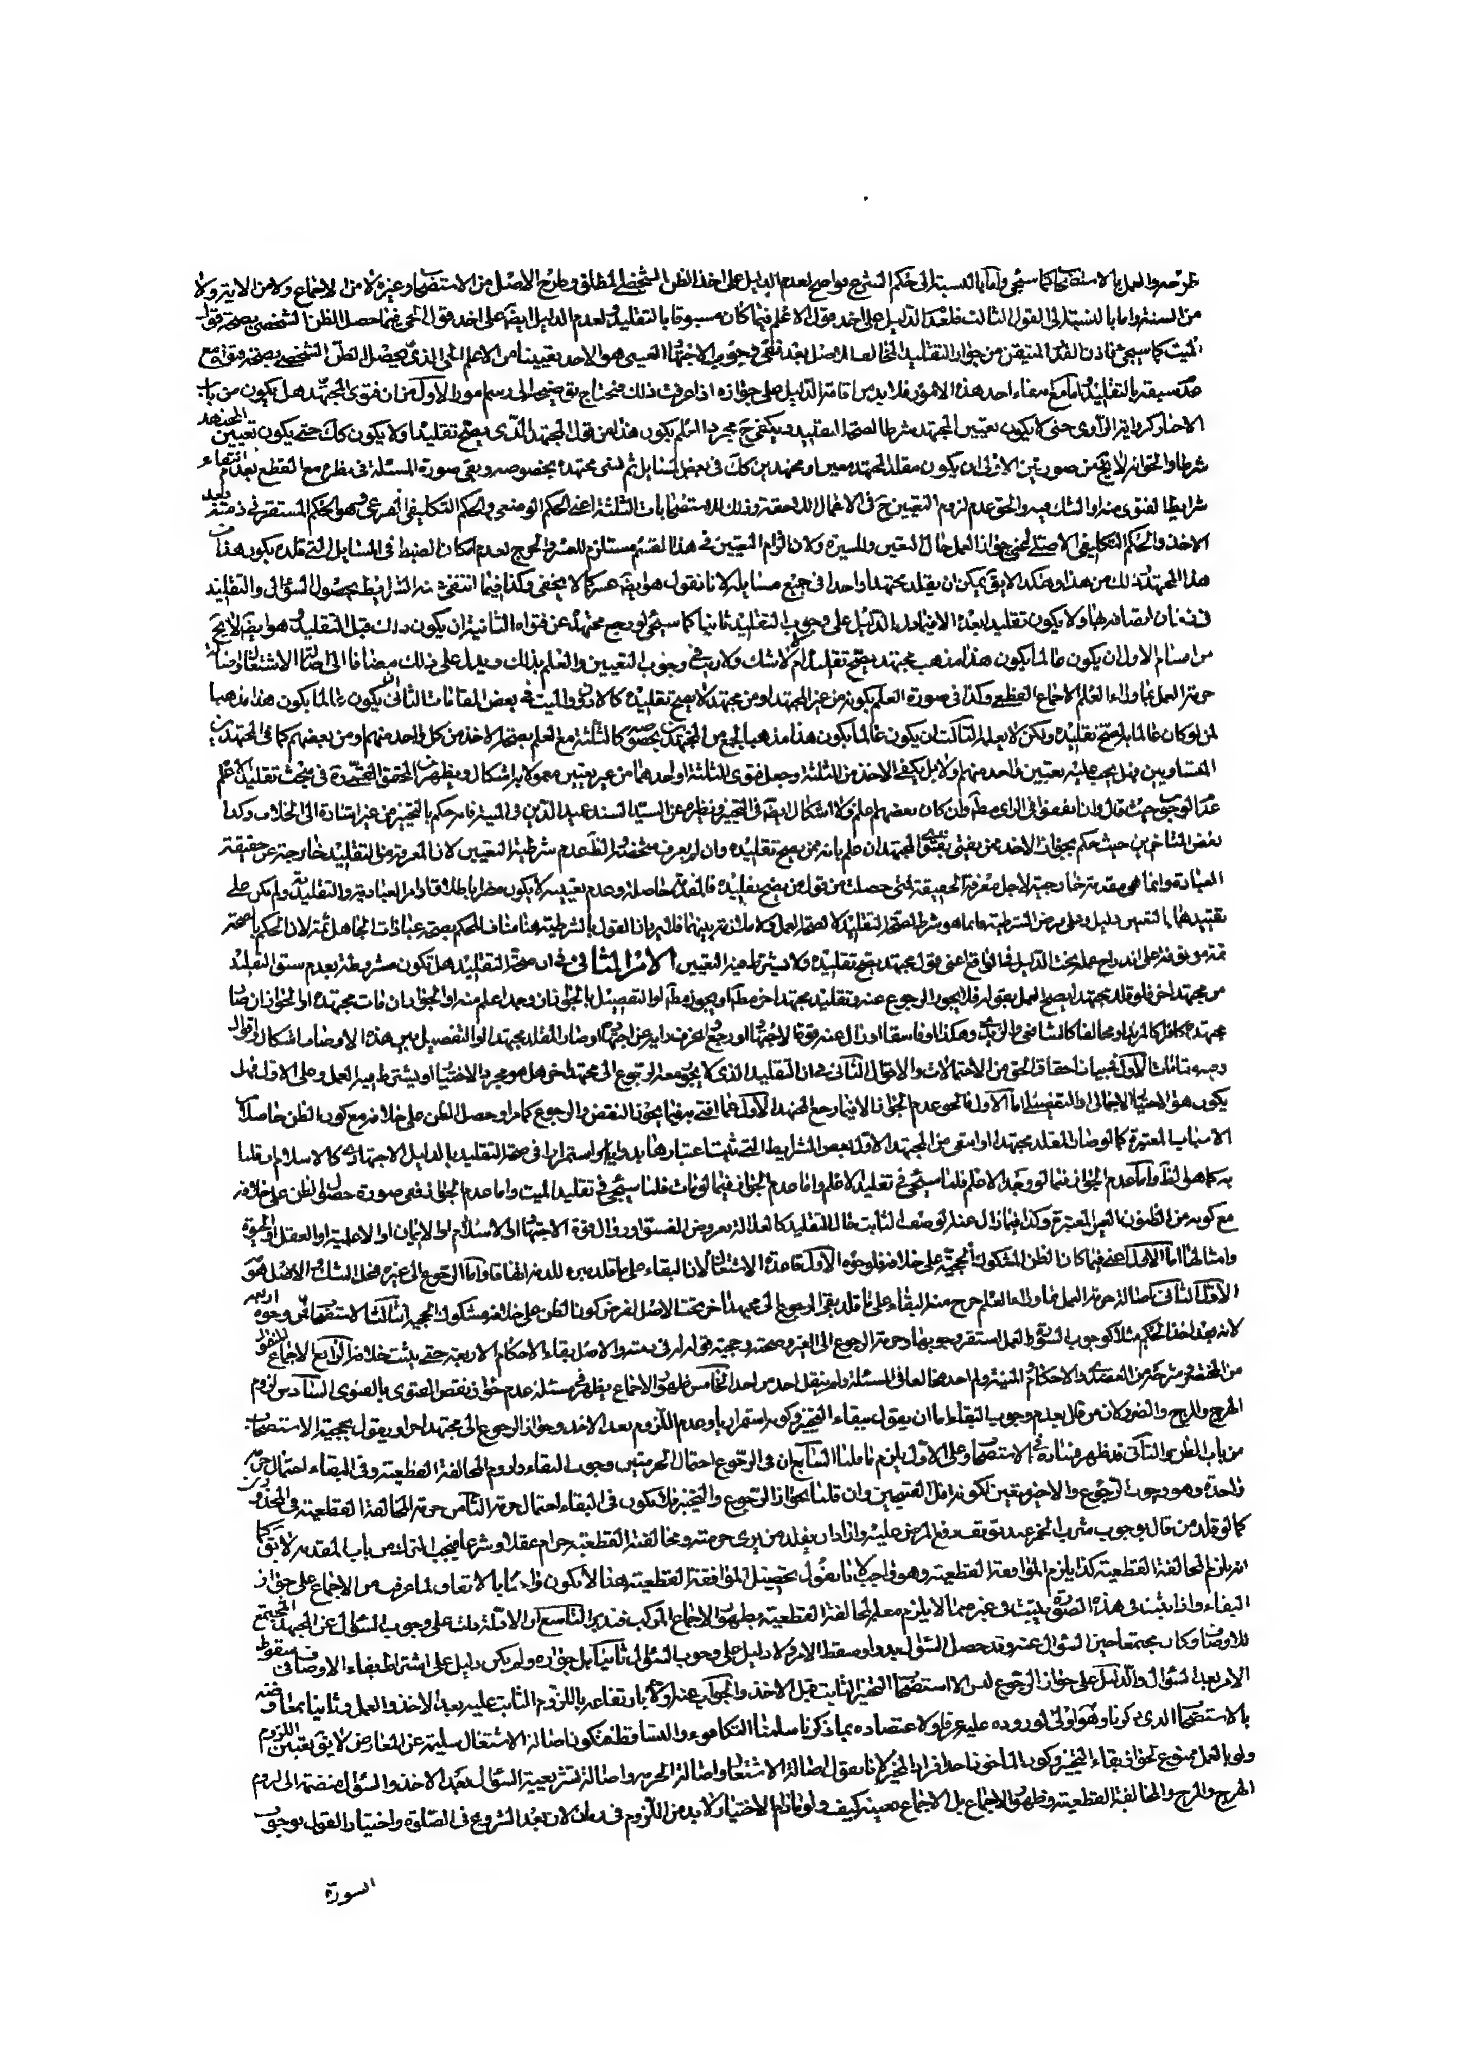 طرحه والعمل بالاستصحاب كما سيجئ واما بالنسبة الى حكم الشرع فواضح لعدم الدليل على اخذ الظن الشخصى المطلق وطرح الاصل من الاستصحاب وغيره لا من الاجماع ولا من الاية ولا
من السنة واما بالنسبة الى القول الثالث فلعدم الدليل على اخذ قول الاعلم فيما كان مسبوقا بالتقليد لعدم الدليل ايضا على اخذ قول الحى فيما حصل الظن الشخصى بصحة قول
الميت كما سيجئ فاذن القدر المتيقن من جواز التقليد المخالف للاصل بعد فى وجوب الاجتهاد العينى هو الاخذ تعيينا من الاعلم الحى الذى يحصل الظن الشخصى وبصحة قوله مع
عدم سبقه بالتقليد اما مع بقاء احد هذه الامور فلا بد من اقامة الدليل على جوازه اذا عرفت ذلك فنحتاج توضيحه الى رسم امور الاول من ان فتوى المجتهد هل يكون من باب
الاخبار كرواية الراوى حتى لا يكون تعيين المجتهد شرطا لصحة التقليد ويكفى ح مجرد العلم بكون هذا من قول المجتهد الذى يصح تقليده او لا يكون كك حتى يكون تعيين المجتهد
شرطا والحق انه لا يخ من صورتين الاولى ان يكون مقلد المجتهد معين او مجتهدين كك فى بعض المسايل ثم نسى مجتهده بخصوصه وبقى صورة المسئلة فى نظره مع القطع بعدم انتفاء
شرايط الفتوى منه او الشك فيه والحق عدم لزوم التعيين ح فى الاعمال اللاحقة وذلك للاستصحابات الثلثة اعنى الحكم الوضعى والحكم التكليفى الفرعى وهو الحكم المستقر فى ذمته بعد
الاخذ والحكم التكليفى الاصلى اعنى جواز العمل حال التعيين والمسيرة ولان الزام التعيين فى هذا القسم مستلزم للعسر والحرج لعدم امكان الضبط فى المسايل التى قلده بكون هذا من
هذا المجتهد ذلك من هذا وهكذا لا يق يمكن ان يقلد مجتهدا واحدا فى جميع مسايله لانا نقول هو ايضا عسر كما لا يخفى وكذا فيما انتفى منه الشرايط بحصول السؤال والتقليد
فى زمان اتصافه بها ولا يكون تقليدا بعده الا فيما دل الدليل على وجوب التقليد ثانيا كما سيجئ لو رجع مجتهده عن فتواه الثانية ان يكون ذلك قبل التقليد وهو ايضا لا يخ
من اقسام الاول ان يكون عالما بكون هذا مذهب مجتهد يصح تقليده ام لا شك ولا ريب فى وجوب التعيين والعلم بذلك ويدل على ذلك مضافا الى اصالة الاشتغال واصالة
حرمة العمل بما وراء العلم الاجماع القطعى وكذا فى صورة العلم بكونه من غير المجتهد او من مجتهد لا يصح تقليده كالادون والميت فى بعض المقامات الثانى ان يكون عالما بكون هذا مذهبا
لمن لو كان عالما به لصح تقليده ولكن لا يعلمه الثالث ان يكون عالما بكون هذا مذهبا لجمع من المجتهدين بخصوصه كالثلثة مع العلم بصحة الاخذ من كل واحد منهم او من بعضهم كما فى المجتهدين
المتساويين فهل يجب عليه تعيين واحد منهم ولا بل يكفى الاخذ من الثلثة وجعل فتوى الثلثة او احدهما من غير تعيين معمولا به اشكال ويظهر من المحقق القمى ره فى مبحث تقليد الاعلم
عدم الوجوب حيث قال وان اتفقوا فى الراى مط وان كان بعضهم اعلم ولا اشكال ايضا فى التخيير ونظره عن السيد السند عميد الدين فى المنية فانه حكم بالتخيير من غير اشارة الى الخلاف وكذا
بعض المتاخرين حيث حكم بجواز الاخذ ممن يفتى بفتوى المجتهد ان علم بانه ممن يصح تقليده وان لم يعرف شخصه والظ عدم شرطية التعيين لان المعرفة من التقليد خارجة عن حقيقة
العبادة وانما هى مقدمة خارجية لاجل معرفة الحقيقة التى حصلت من قول من يصح تقليده فالمقدمة حاصلة وعدم تعيينه لا يكون مضرا باطلاق اوامر العبادية والتقليدية ولم يكن على
تقييدها بالتعيين دليل وعلى فرض الشرطية فانما هو شرط لصحة التقليد لا لصحة العمل ولا ملازمة بينهما فلا يرد ان القول بالشرطية هنا مناف للحكم بصحة عبادات الجاهل ثمة لان الحكم بالصحة
ثمة موقوفة على اندراج عمله تحت الدليل فى الواقع اعنى قول مجتهد يصح تقليده ولا يشترط فيه التعيين الامر الثانى فى ان صحة التقليد هل تكون مشروطة بعدم سبق التقليد
من مجتهد اخر فلو قلد مجتهدا يصح العمل بقوله فلا يجوز الرجوع عنه وتقليد مجتهد اخر مط او يجوز مط او التفصيل بالجواز ان وجد اعلم منه او الجواز ان مات مجتهده او الجواز ان صار
مجتهده كافرا كالمرتد او مخالفا كالشافعى والحنفى وهكذا او فاسقا او زال عنه قوة الاجتهاد او رجع او عرف رايه عن اجتهاد او صار المقلد مجتهدا او التفصيل بين هذه الاوصاف اشكال واقوال
وجهه مقامات الاول فى بيان احقاق الحق من الاحتمالات والاقوال الثانى فى ان التقليد الذى لا يجوز معه الرجوع الى مجتهد اخر هل هو مجرد الاختيار او يشترط فيه العمل وعلى الاول فهل
يكون هو الاختيار الاجمالى او التفصيلى اما الاول فالحق عدم الجواز الا فيما رجع المجتهد الاول عما افتى به فيما يجوز النقض والرجوع كما مر او حصل الظن على خلافه مع كون الظن خاصا من
الاسباب المعتبرة كما لو صار المقلد مجتهدا او انتفى من المجتهد الاول بعض الشرايط التى ثبت اعتبارها بدوا واستمرارا فى صحة التقليد بالدليل الاجتهادى كالاسلام ان قلنا
به كما هو الظ واما عدم الجواز فيما لو وجد الاعلم فلما سيجئ فى تقليد الاعلم واما عدم الجواز فيما لو مات فلما سيجئ فى تقليد الميت واما عدم الجواز ففى صورة حصول الظن على خلافه
مع كونه من الظنون الغير المعتبرة وكذا فيما زال عنه الوصف الثابت حال التقليد كالعدالة بعروض الفسق او زوال قوة الاجتهاد او الاسلام او الايمان او الاعلمية او العقل او الحيوة
وامثالها اما الاول اعنى فيما كان الظن المشكوك الحجية على خلافه فلوجوه الاول قاعدة الاشتغال لان البقاء على ما قلده مبرء للذمة اتفاقا واما الرجوع الى غيره محل الشك والاصل هو
الاول الثانى اصالة حرمة العمل بما وراء العلم خرج منه البقاء على ما قلد بقى الرجوع الى مجتهد اخر تحت الاصل لفرض كون الظن على خلافه مشكوك الحجية الثالث الاستصحاب من وجوه اربعة
لانه بعد اخذ الحكم مثلا كوجوب السورة بالعمل استقر وجوبها وحرمة الرجوع الى الغير وصحته وحجية قوله فى ذمته والاصل بقاء الاحكام الاربعة حتى يثبت خلافه الرابع الاجماع المنقول
من المحقق فى شرحه من العضدى والاحكام والمنية ولم احد مخالفا فى المسئلة ولم ينقل احد من احد الخامس ظهور الاجماع يظهر فى مسئلة عدم جواز نقض الفتوى بالفتوى السادس لزوم
الهرج والمرج والضرر لان من قال بعدم وجوب البقاء اما ان يقول ببقاء التخيير وكونه استمراريا وعدم اللزوم بعد الاخذ وجواز الرجوع الى مجتهد اخر او يقول بحجية الاستصحاب
من باب الظن والثانى قد ظهر فساده فى الاستصحاب وعلى الاول يلزم ما قلنا السابع ان فى الرجوع احتمال الحرمتين وجوب البقاء ولزوم المخالفة القطعية وفى البقاء احتمال حرمة
واحدة وهو وجوب الرجوع والاخير متعين لكونه اقل القبيحين وان قلنا بجواز الرجوع والتخيير فلا يكون فى البقاء احتمال حرمة الثامن حرمة المخالفة القطعية فى المحذورين
كما لو قلد من قال بوجوب شرب الخمر عند توقف دفع المرض عليه واذا اراد تقليد من يرى حرمته ومخالفته القطعية حرام عقلا وشرعا فيجب الترك من باب المقدمة لا يق كما
انه يلزم المخالفة القطعية كذا يلزم الموافقة القطعية وهو واجب لانا نقول تحصيل الموافقة القطعية هنا لا يكون واجبا بالاتفاق لما عرفت من الاجماع على جواز
البقاء واذا ثبت فى هذه الصورة يثبت فى غيرها مما لا يلزم معه المخالفة القطعية بظهور الاجماع المركب فتدبر التاسع ان الادلة دلت على وجوب السؤال عن المجتهد المجتمع
للاوصاف وكان مجتمعا حين السؤال عنه وقد حصل السؤال بدوا وسقط الامر ولا دليل على وجوب السؤال ثانيا بل جوازه ولم يكن دليل على اشتراط بقاء الاوصاف فى سقوط
الامر بعد السؤال والدليل على جواز الرجوع ليس الا استصحاب التخيير الثابت قبل الاخذ والجواب عنه اولا بارتفاعه باللزوم الثابت عليه بعد الاخذ والعمل وثانيا بمعارضته
بالاستصحاب الذى ذكرنا وهو اولى لوروده عليه عرفا ولاعتضاده بما ذكرنا سلمنا التكافوء والتساقط فتكون اصالة الاشتغال سليمة عن المعارض لا يق بقبلين اللزوم
ولو بالعمل ممنوع لجواز بقاء التخيير وكون الماخوذ احد افراد المخير لانا نقول اصالة الاشتغال واصالة الحرمة واصالة تشريعية السؤال بعد الاخذ والسؤال منضمة الى لزوم
الهرج والمرج والمخالفة القطعية وظهور الاجماع بل الاجماع تعينه كيف ولو نادام الاختيار لا بد من اللزوم فى زمان لان بعد الشروع فى الصلوة واختيار القول بوجوب
السورة